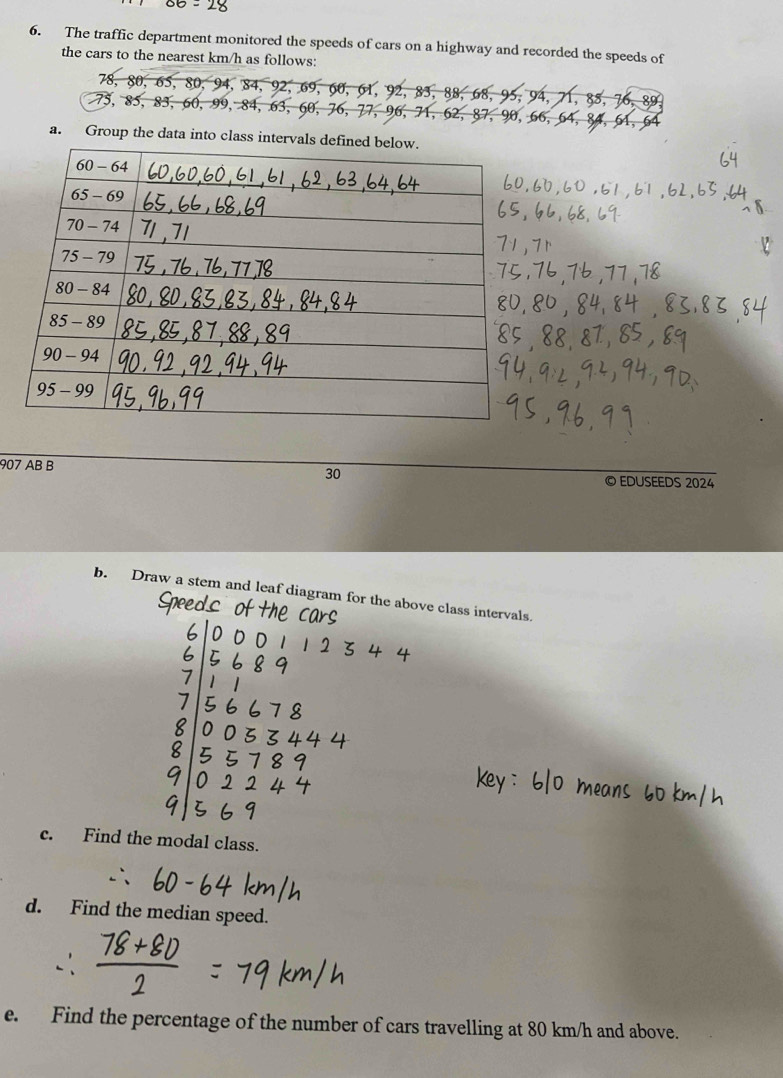 86 = 28
6. The traffic department monitored the speeds of cars on a highway and recorded the speeds of
the cars to the nearest km/h as follows:
78, 80, 65, 80, 94, 84, 92, 69, 60, 61, 92, 83, 88, 68, 95, 94, 71, 85, 76, 89,
75, 85, 83, 60, 99, 84, 63, 60, 76, 77, 96, 71, 62, 87, 90, 66, 64, 84, 61, 64
a. Group the data into class intervals defined below.
64
60 – 64 60,60,60,61,61,62,63,64,64
60,60,60,61,61,62,63,64
65 – 69 65,66,68,69
65,66,68,69
70 – 74 71,71
71,71
75 – 79 75,76,76,77,78
75,76,76,77,78
80 – 84 80,80,83,83,84,84,84
80,80,84,84,83,83,84
85 – 89 85,85,87,88,89
85,88,87,85,89
90 – 94 90,92,92,94,94
94,92,92,94,90,
95 – 99 95,96,99
95,96,99
907 AB B
30
© EDUSEEDS 2024
b. Draw a stem and leaf diagram for the above class intervals.
Speeds of the cars
6|0 0 0 1 1 2 3 4 4
6|5 6 8 9
7|1 1
7|5 6 6 7 8
8|0 0 3 3 4 4 4
8|5 5 7 8 9
9|0 2 2 4 4
9|5 6 9
key: 6|0 means 60 km/h
c. Find the modal class.
∴ 60-64 km/h
d. Find the median speed.
∴ 78+80
2
= 79 km/h
e. Find the percentage of the number of cars travelling at 80 km/h and above.